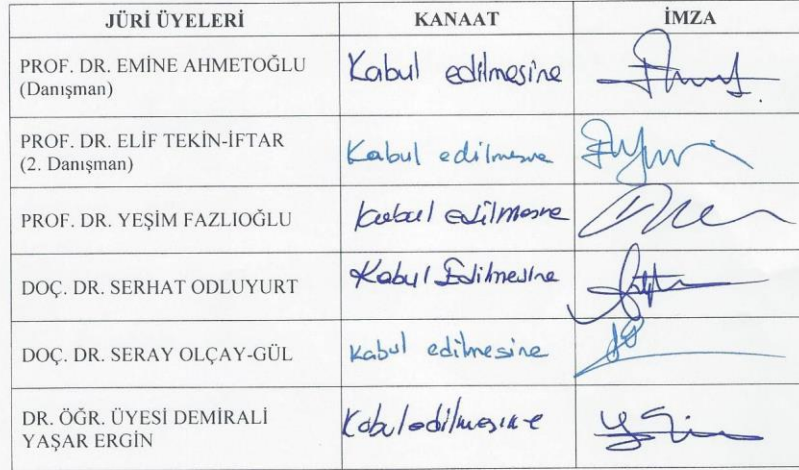 JÜRİ ÜYELERİ KANAAT İMZA
PROF. DR. EMİNE AHMETOĞLU
(Danışman)
Kabul edilmesine
PROF. DR. ELİF TEKİN-İFTAR
(2. Danışman)
Kabul edilmesine
PROF. DR. YEŞİM FAZLIOĞLU
Kabul edilmesine
DOÇ. DR. SERHAT ODLUYURT
Kabul Edilmesine
DOÇ. DR. SERAY OLÇAY-GÜL
Kabul edilmesine
DR. ÖĞR. ÜYESİ DEMİRALİ
YAŞAR ERGİN
Kabul edilmesine